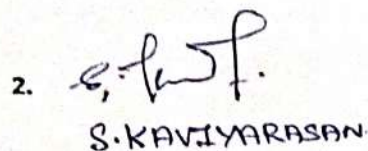 2.
S.KAVIYARASAN